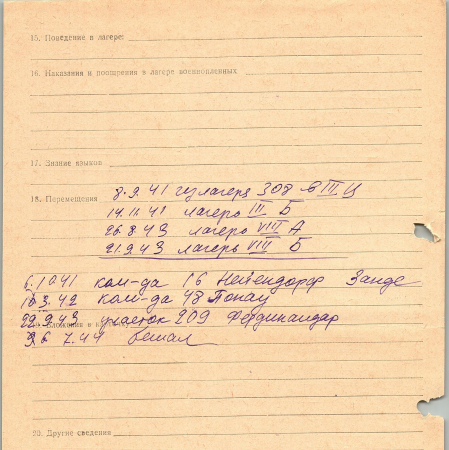 15. Поведение в лагере:
16. Наказания и поощрения в лагере военнопленных
17. Знание языков
18. Перемещения 8.9.41 из лагеря 308 в III Ц
14.11.41 лагерь III Б
26.8.43 лагерь VIII А
21.9.43 лагерь VIII Б
6.10.41 ком-да 16 Нейендорф Занде
3.42 ком-да 48
22.9.43 участок 209 Фердинандар
7.44 бежал
20. Другие сведения